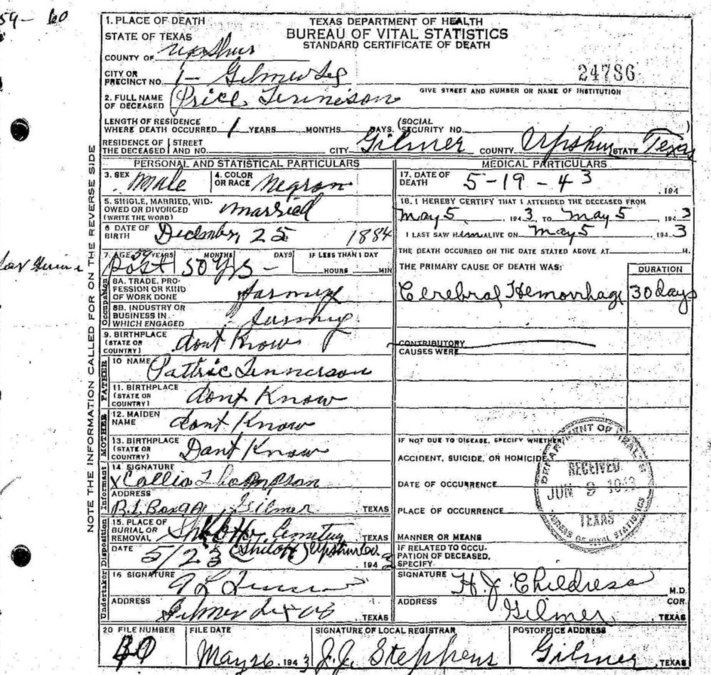 59- 60
1. PLACE OF DEATH
STATE OF TEXAS
COUNTY OF Upshur
TEXAS DEPARTMENT OF HEALTH
BUREAU OF VITAL STATISTICS
STANDARD CERTIFICATE OF DEATH
CITY OR
PRECINCT NO. 1- Gilmer
24786
GIVE STREET AND NUMBER OR NAME OF INSTITUTION
2. FULL NAME
OF DECEASED Price Tennison
LENGTH OF RESIDENCE
WHERE DEATH OCCURRED 1 YEARS MONTHS DAYS. (SOCIAL SECURITY NO.
RESIDENCE OF THE DECEASED STREET AND NO. CITY Gilmer COUNTY. Upshur STATE Texas
PERSONAL AND STATISTICAL PARTICULARS
3. SEX Male 4. COLOR OR RACE Negron
5. SINGLE, MARRIED, WID-
OWED OR DIVORCED
(WRITE THE WORD) married
6 DATE OF
BIRTH December 25 1884
7. AGE YEARS MONTHS DAYS IF LESS THAN 1 DAY
Post 50 yrs - HOURS MIN
8A. TRADE, PRO-
FESSION OR KIND
OF WORK DONE farming
8B. INDUSTRY OR
BUSINESS IN
WHICH ENGAGED farming
9. BIRTHPLACE
(STATE OR
COUNTRY) dont Know
FATHER
10 NAME Pattric Tennerson
11. BIRTHPLACE
(STATE OR
COUNTRY) dont Know
MOTHER
12. MAIDEN
NAME dont Know
13. BIRTHPLACE
(STATE OR
COUNTRY) Dont Know
Informant
14 SIGNATURE
x Callie Thompson
ADDRESS
Gilmer TEXAS
Disposition
15. PLACE OF
BURIAL OR
REMOVAL Cemetery
DATE 5/23 (Shiloh) Upshur Co. 194
Undertaker
16 SIGNATURE
ADDRESS
Gilmer TEXAS
MEDICAL PARTICULARS
17. DATE OF
DEATH 5-19-43 .194
18. I HEREBY CERTIFY THAT I ATTENDED THE DECEASED FROM
May 5 1943 TO May 5 1943
I LAST SAW H ALIVE ON May 5 1943
THE DEATH OCCURRED ON THE DATE STATED ABOVE AT M.
THE PRIMARY CAUSE OF DEATH WAS: DURATION
Cerebral Hemorrhage 30 days
CONTRIBUTORY
CAUSES WERE
IF NOT DUE TO DISEASE, SPECIFY WHETHER
ACCIDENT, SUICIDE, OR HOMICIDE
DATE OF OCCURRENCE
PLACE OF OCCURRENCE
MANNER OR MEANS
IF RELATED TO OCCU-
PATION OF DECEASED,
SPECIFY
RECEIVED
JUN 9 1943
TEXAS
BUREAU OF VITAL STATISTICS
SIGNATURE H. J. Childress M.D.
COR.
ADDRESS Gilmer, TEXAS
20 FILE NUMBER 40
FILE DATE May 26 1943
SIGNATURE OF LOCAL REGISTRAR J.J. Stephens
POSTOFFICE ADDRESS Gilmer TEXAS
NOTE THE INFORMATION CALLED FOR ON THE REVERSE SIDE